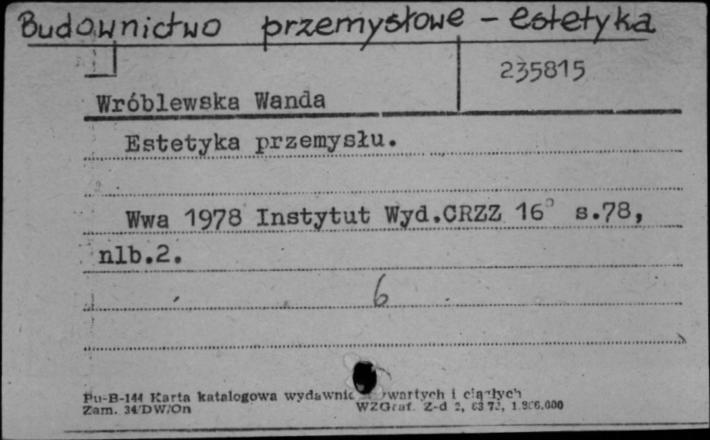 Budownictwo przemysłowe - estetyka
235815
Wróblewska Wanda
Estetyka przemysłu.
Wwa 1978 Instytut Wyd.CRZZ 16° s.78,
nlb.2.
6
Pu-B-144 Karta katalogowa wydawnic wartych i ciągłych
Zam. 34/DW/On WZGraf. Z-d 2,